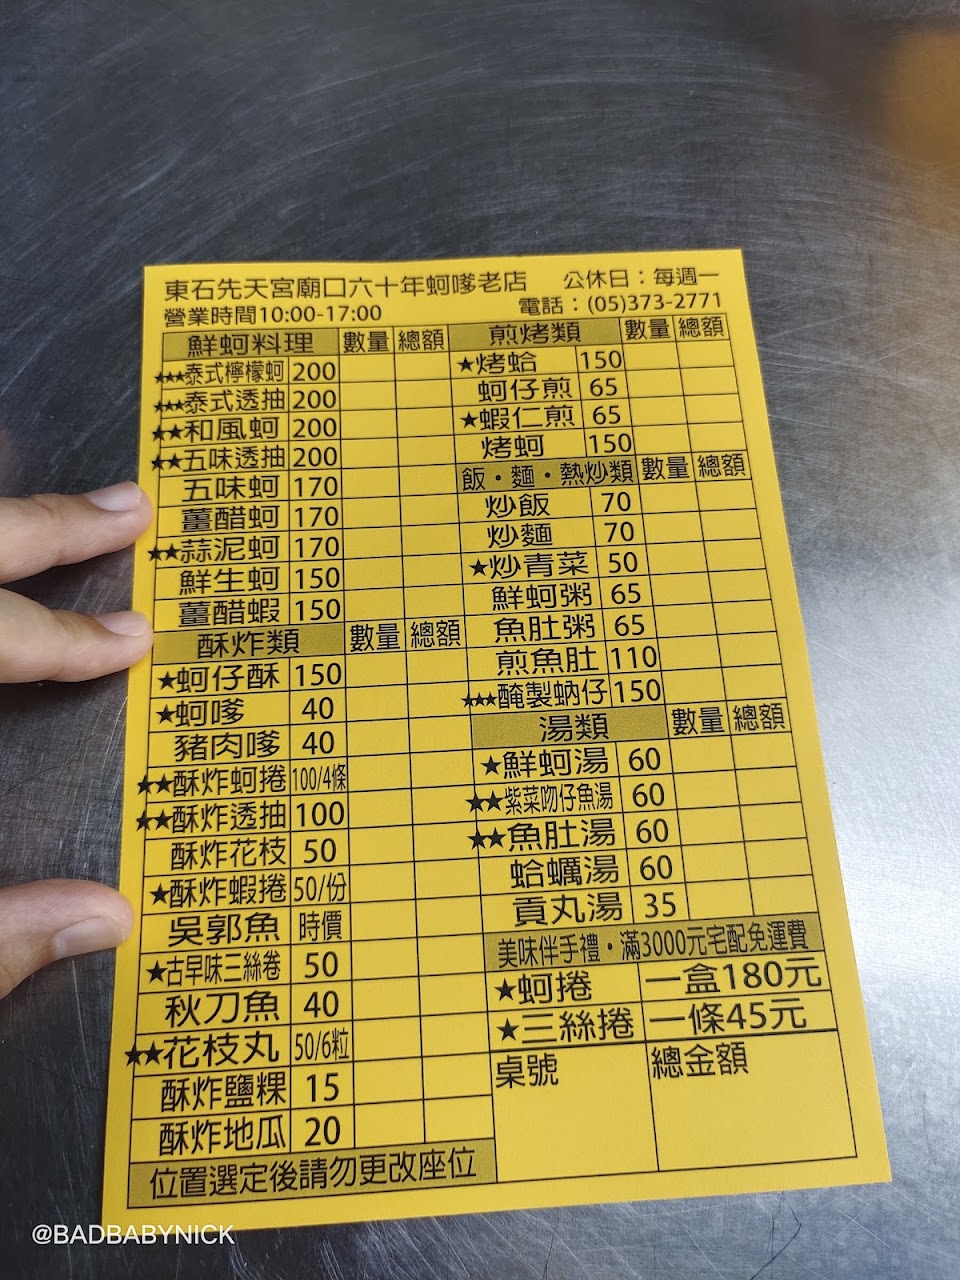 東石先天宮廟口六十年蚵嗲老店 公休日：每週一
營業時間10:00-17:00 電話：(05)373-2771
鮮蚵料理 數量 總額
★★★泰式檸檬蚵 200
★★★泰式透抽 200
★★和風蚵 200
★★五味透抽 200
五味蚵 170
薑醋蚵 170
★★蒜泥蚵 170
鮮生蚵 150
薑醋蝦 150
酥炸類 數量 總額
★蚵仔酥 150
★蚵嗲 40
豬肉嗲 40
★★酥炸蚵捲 100/4條
★★酥炸透抽 100
酥炸花枝 50
★酥炸蝦捲 50/份
吳郭魚 時價
★古早味三絲捲 50
秋刀魚 40
★★花枝丸 50/6粒
酥炸鹽粿 15
酥炸地瓜 20
位置選定後請勿更改座位
煎烤類 數量 總額
★烤蛤 150
蚵仔煎 65
★蝦仁煎 65
烤蚵 150
飯・麵・熱炒類 數量 總額
炒飯 70
炒麵 70
★炒青菜 50
鮮蚵粥 65
魚肚粥 65
煎魚肚 110
★★★醃製蚋仔 150
湯類 數量 總額
★鮮蚵湯 60
★★紫菜吻仔魚湯 60
★★魚肚湯 60
蛤蠣湯 60
貢丸湯 35
美味伴手禮・滿3000元宅配免運費
★蚵捲 一盒180元
★三絲捲 一條45元
桌號 總金額
@BADBABYNICK